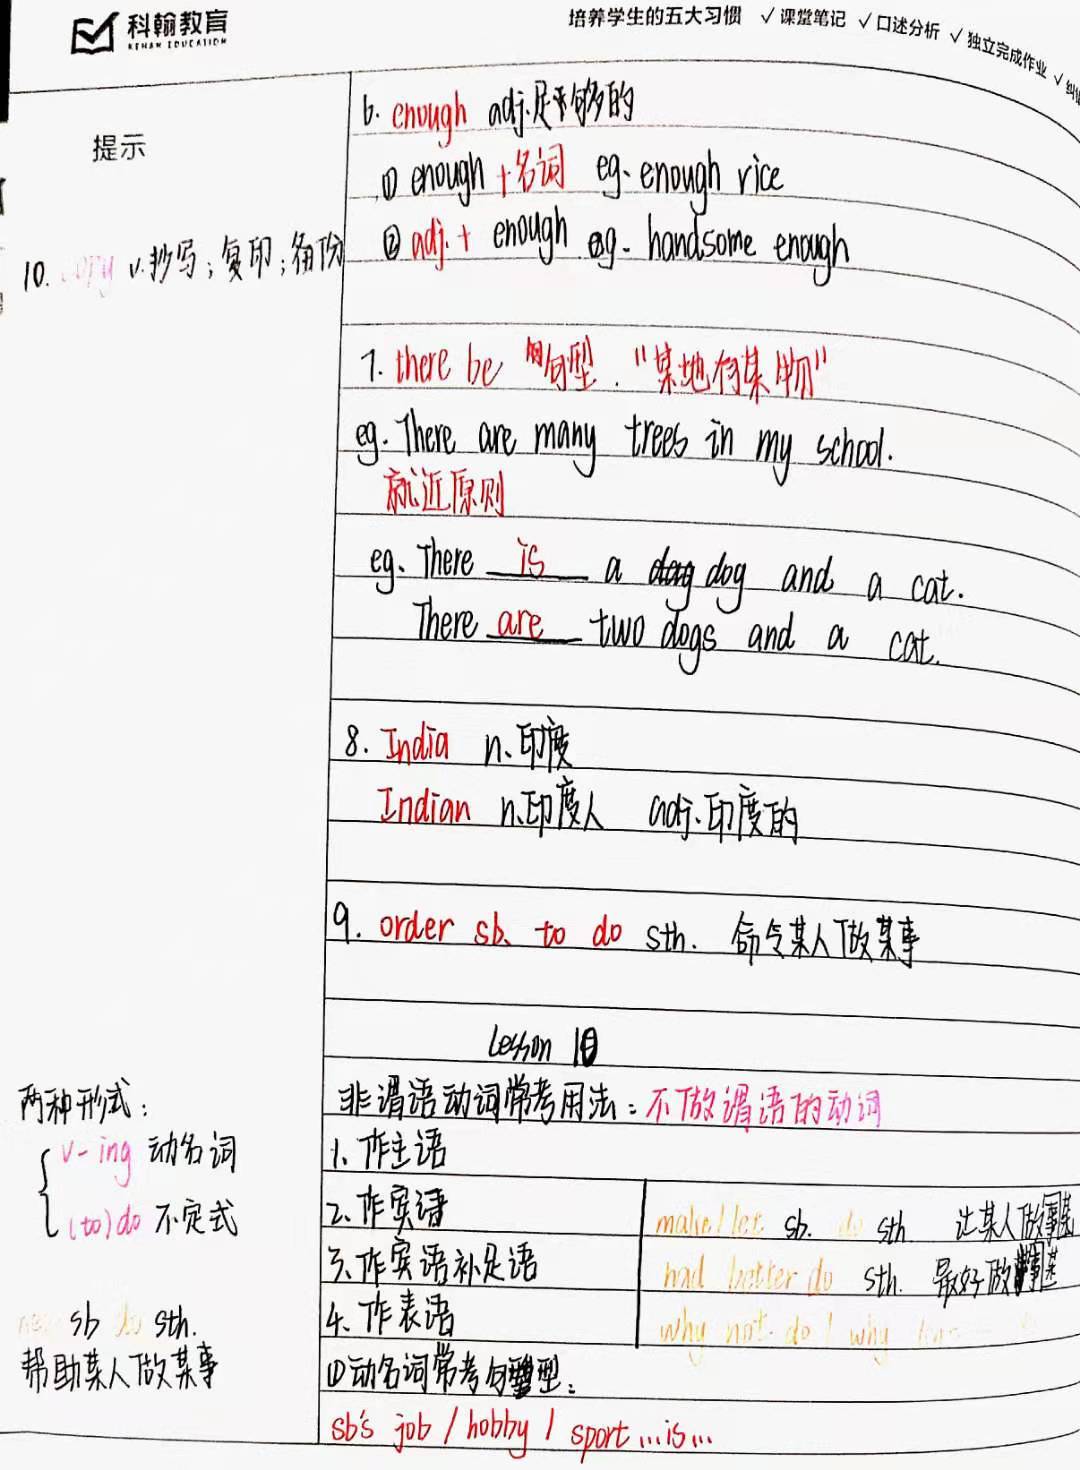 科翰教育
KEHAN EDUCATION
培养学生的五大习惯 ✓课堂笔记 ✓口述分析 ✓独立完成作业 ✓纠
提示
10. copy v.抄写；复印；备份
6. enough adj.足够的
① enough +名词 eg. enough rice
② adj. + enough eg. handsome enough
7. there be 句型."某地有某物"
eg. There are many trees in my school.
就近原则
eg. There is a dog and a cat.
There are two dogs and a cat.
8. India n.印度
Indian n.印度人 adj.印度的
9. order sb. to do sth. 命令某人做某事
Lesson 10
两种形式：
v-ing 动名词
(to) do 不定式
sb do sth.
帮助某人做某事
非谓语动词常考用法：不做谓语的动词
1、作主语
2、作宾语
3、作宾语补足语
4、作表语
make/let sb. do sth. 让某人做某事
had better do sth. 最好做某事
why not do / why
①动名词常考句型：
sb's job / hobby / sport ... is ...